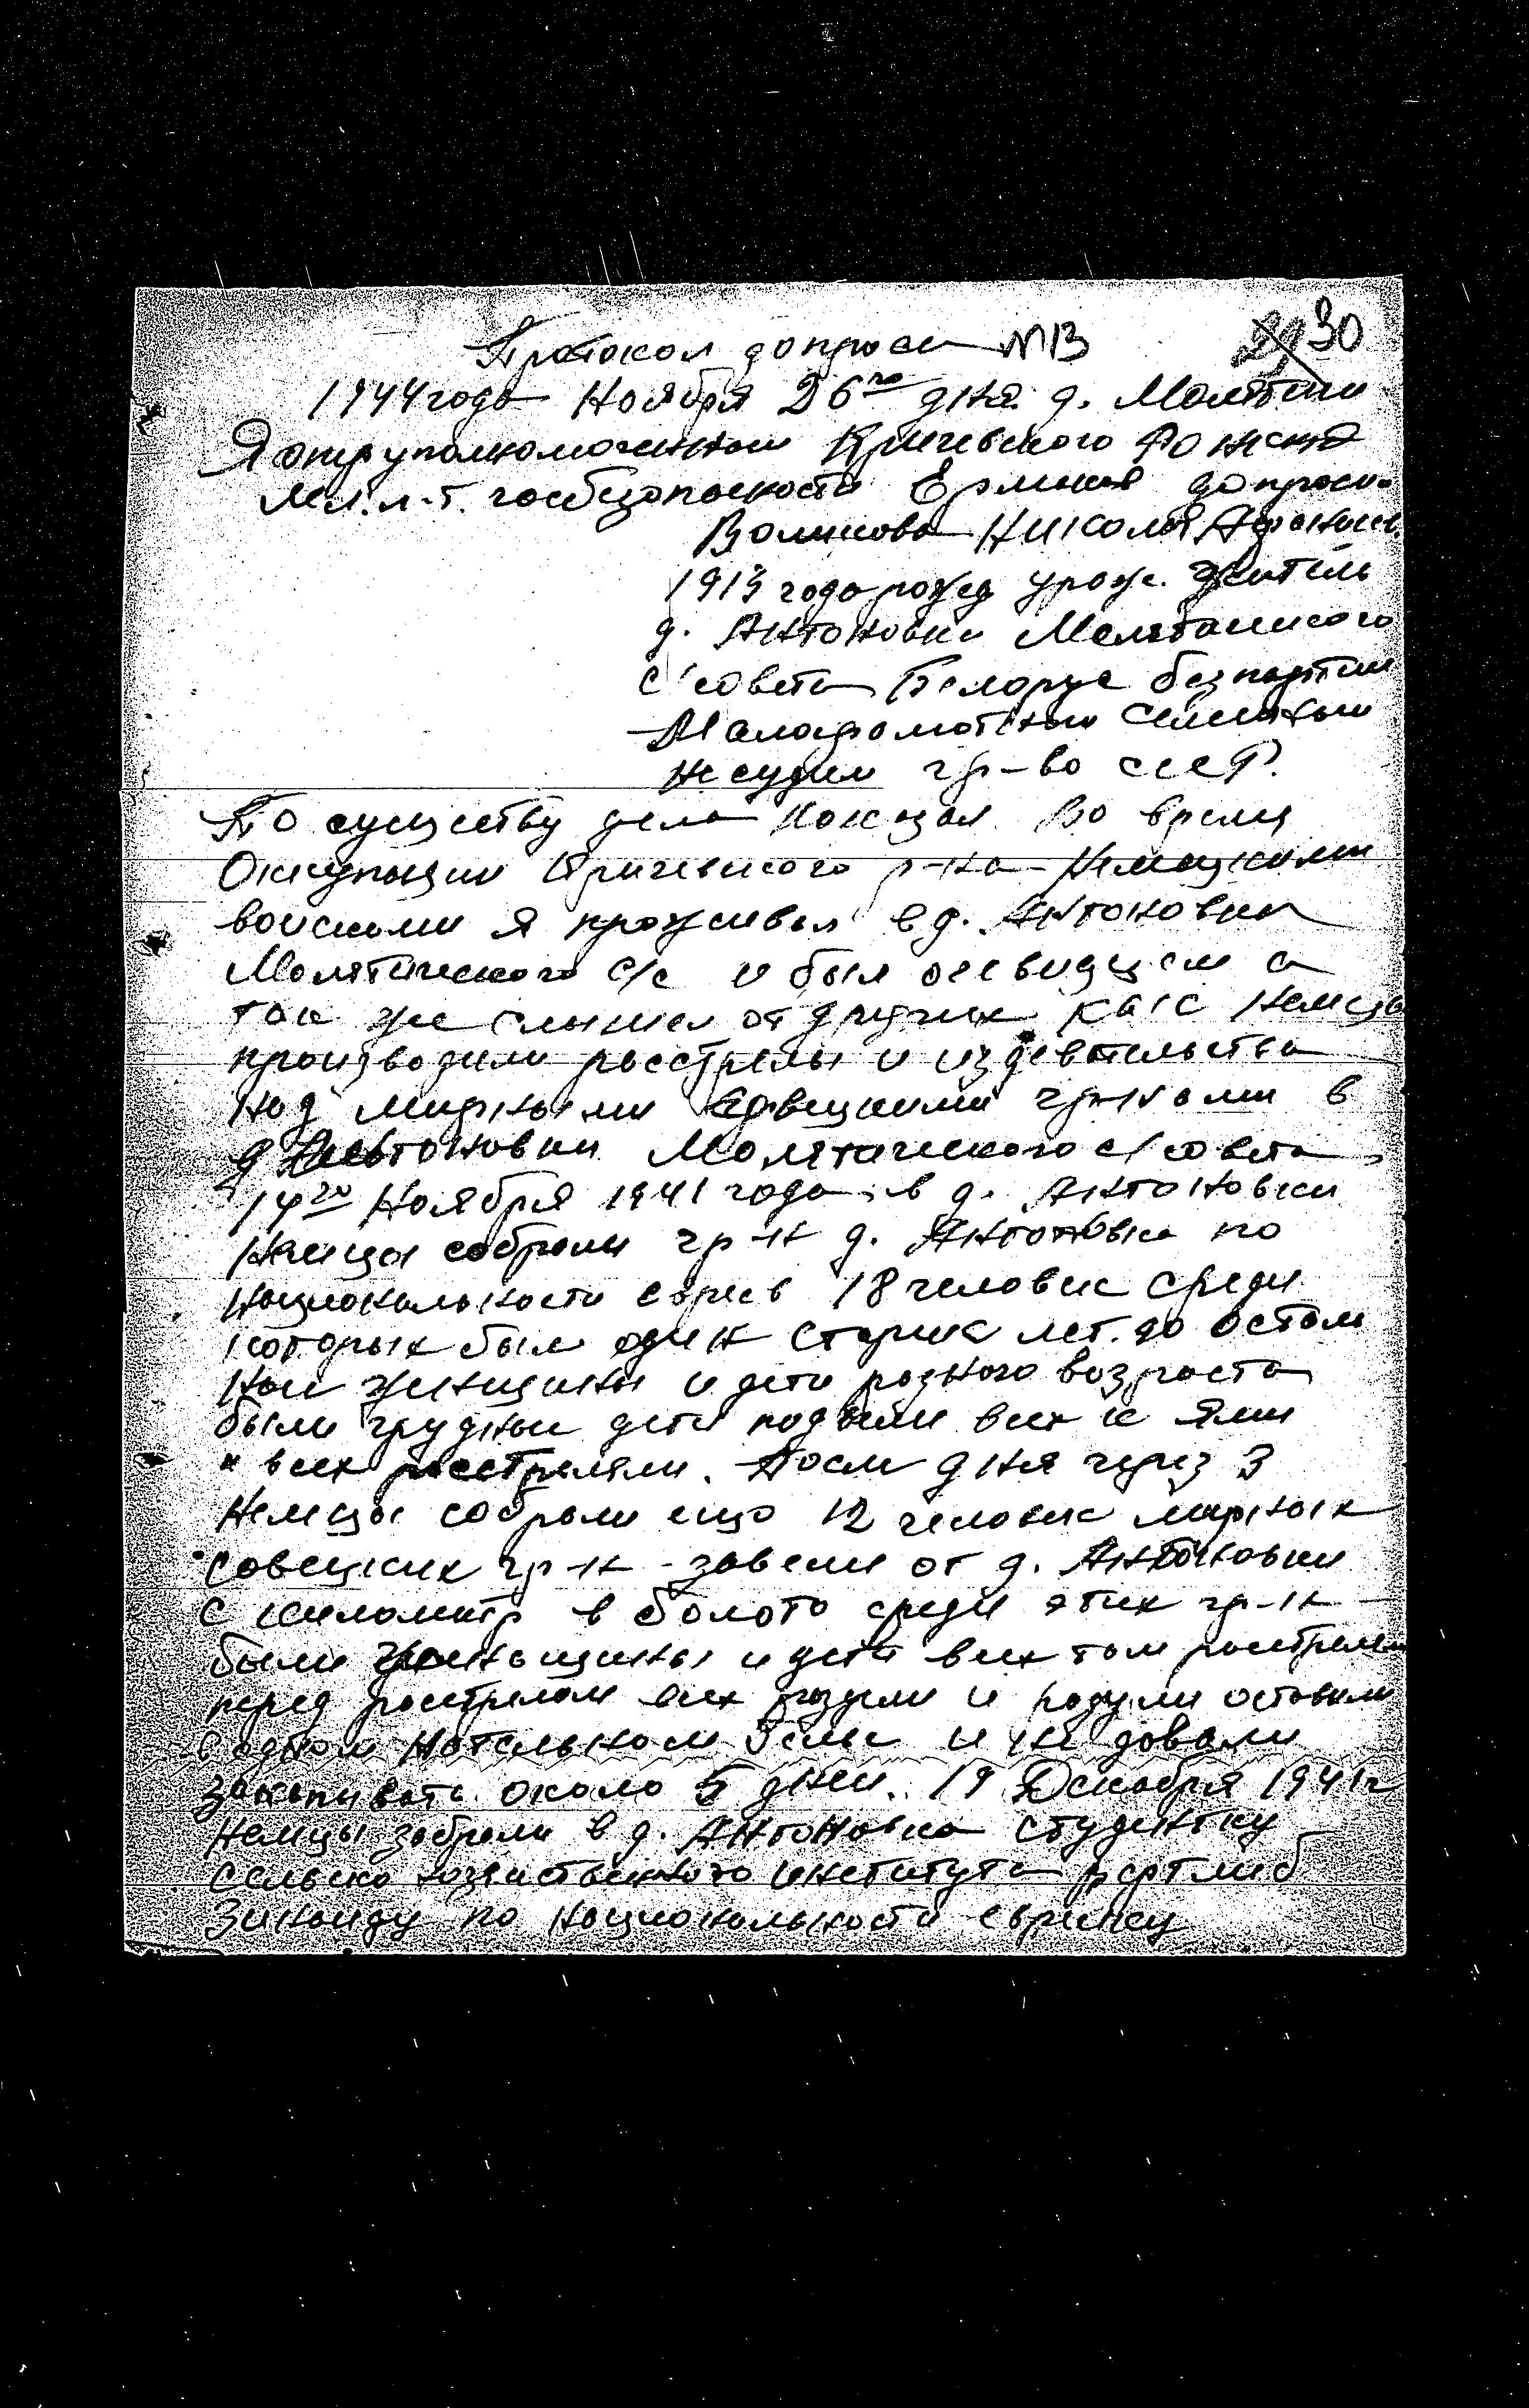 30
Протокол допроса №13
1944 года Ноября 26го дня д. Молятичи
Я оперуполномоченной Кричевского РО НКГБ
Мл. л-т. госбезопасности Ермаков допросил
Воликова Николая
1913 года рожд урож. житель
д. Антоновки Молятичиского
с/совета Белорус безпартии
Малаграмотный семейный
не судим гр-во СССР.
По существу дела показал. Во время
Оккупации Кричевского р-на Немецкими
войсками я проживал в д. Антоновки
Молятического с/с и был очевидцем а
так же слышал от других как немцы
производили расстрелы и издевательства
над мирными советскими гр-нами в
д Антоновки Молятического с/совета
14го Ноября 1941 года в д. Антоновки
Немцы собрали гр-н д. Антоновка по
национальности евреев 18 человек среди
которых был один старик лет. 70 остал
ной женщины и дети разного возроста
были грудные дети подвели всех к ями
и всех расстреляли. После дня через 3
Немцы собрали ещо 12 человек мирных
совецких гр-н завели от д. Антоновки
с километр в болото среди этих гр-н
были женьщины и дети всех там расстреляли
перед расстрелом всех раздели и разули оставили
в одном нательном белье и не довали
закапывать около 5 дней. 19 Декабря 1941г
Немцы забрали в д. Антоновка студентку
сельско хозяиственного института
Зинаиду по национальности еврейку